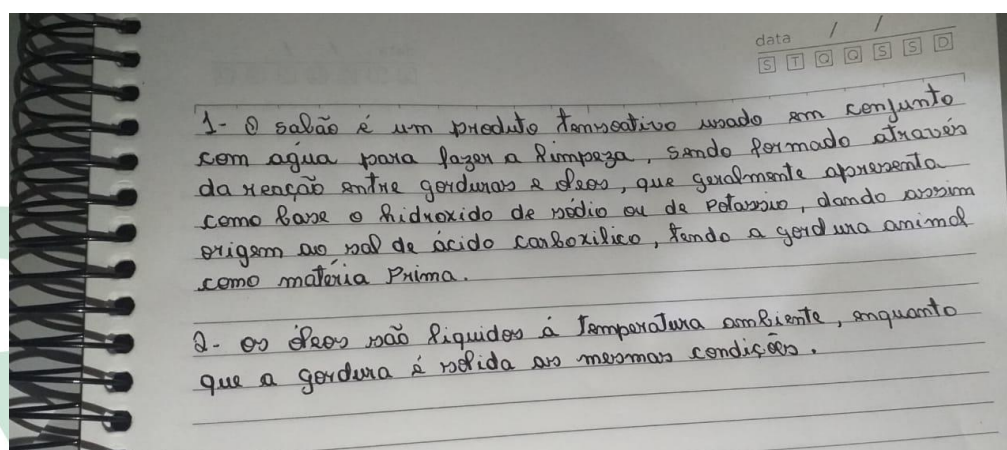 data / /
S T Q Q S S D
1- O sabão é um produto tensoativo usado em conjunto
com agua para fazer a limpeza, sendo formado através
da reação entre gorduras e óleos, que geralmente apresenta
como base o hidroxido de sódio ou de Potassio, dando assim
origem ao sal de ácido carboxilico, tendo a gordura animal
como matéria Prima.
2- os óleos são liquidos á Temperatura ambiente, enquanto
que a gordura é solida as mesmas condições.